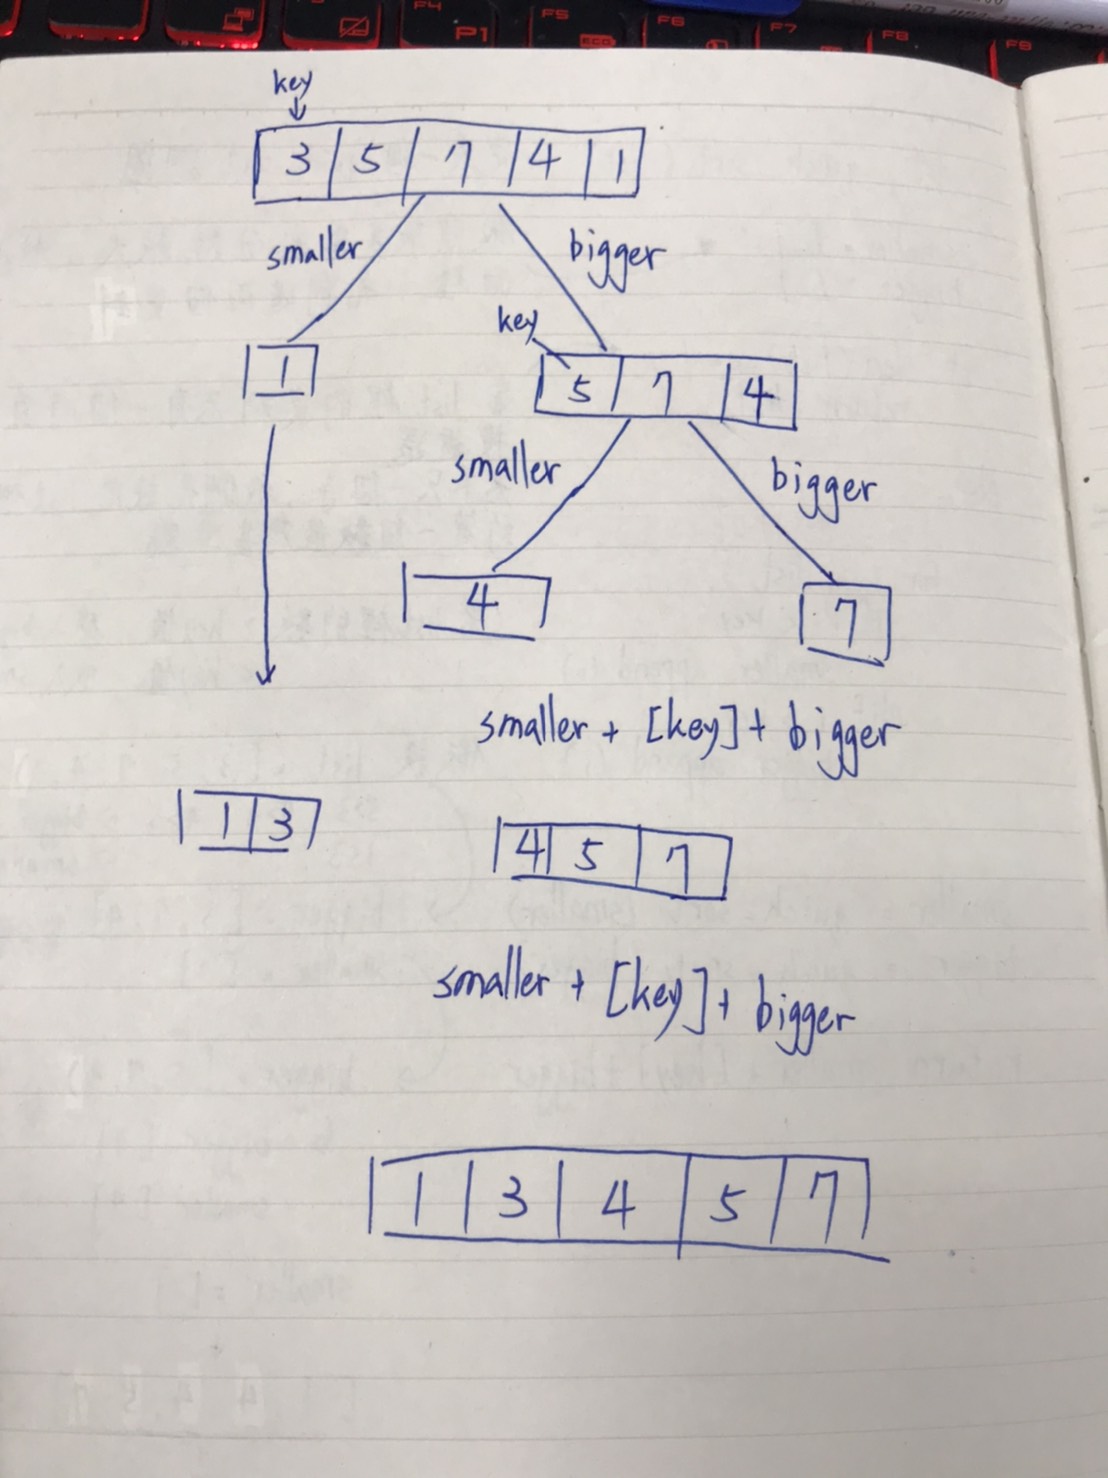 F4
F5
F6
F7
F8
F9
P1
key
3 5 7 4 1
smaller
bigger
key
1
5 7 4
smaller
bigger
4
7
smaller + [key] + bigger
1 3
4 5 7
smaller + [key] + bigger
1 3 4 5 7